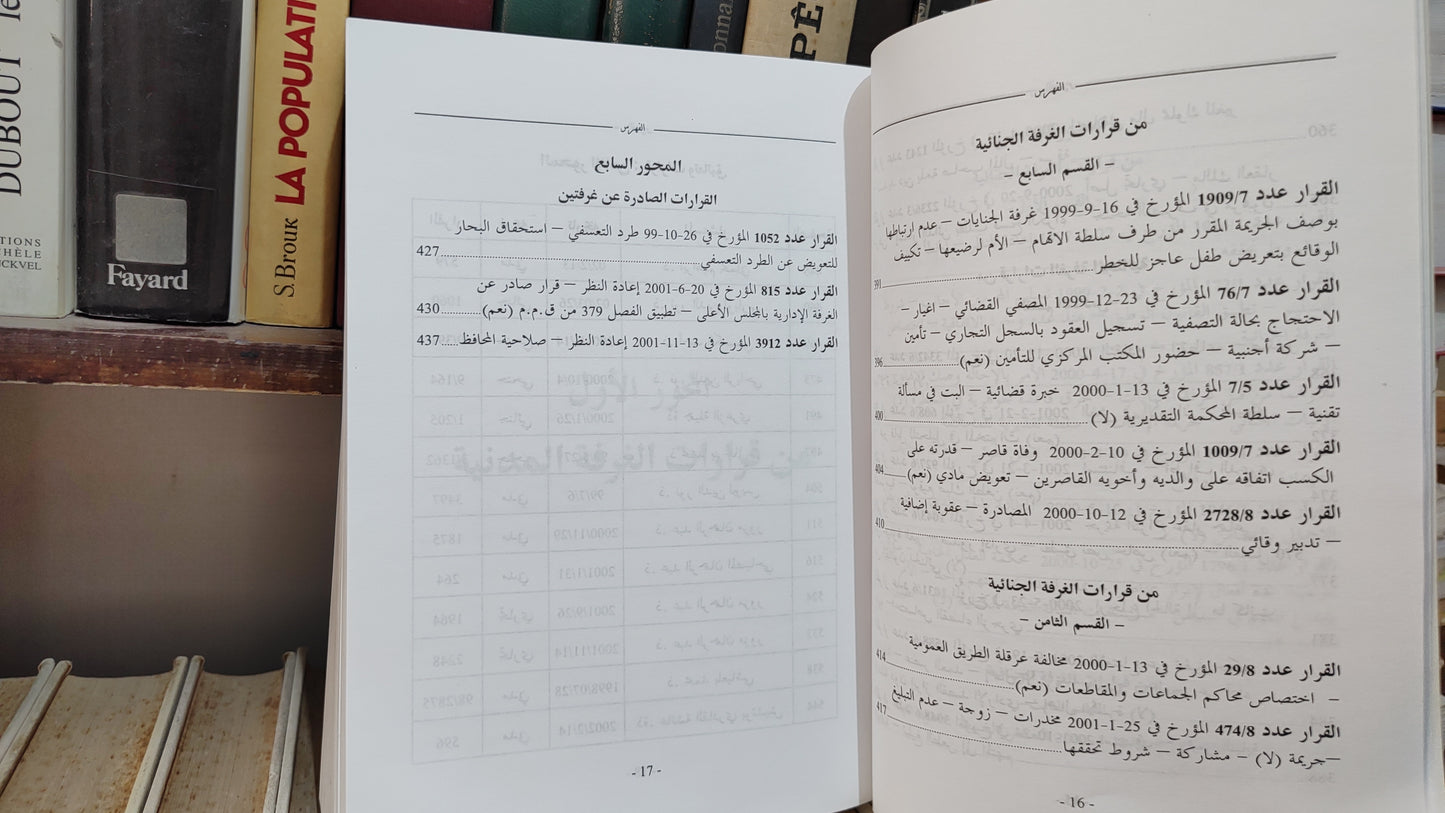 DUBOUT
Fayard
S.BROUK LA POPULATI
الفهرس
من قرارات الغرفة الجنائية
– القسم السابع –
القرار عدد 1909/7 المؤرخ في 16-9-1999 غرفة الجنايات – عدم ارتباطها
بوصف الجريمة المقرر من طرف سلطة الاتهام – الأم لرضيعها – تكييف
الوقائع بتعريض طفل عاجز للخطر 391
القرار عدد 76/7 المؤرخ في 23-12-1999 المصفي القضائي – اغيار –
الاحتجاج بحالة التصفية – تسجيل العقود بالسجل التجاري – تأمين
– شركة أجنبية – حضور المكتب المركزي للتأمين (نعم) 396
القرار عدد 7/5 المؤرخ في 13-1-2000 خبرة قضائية – البت في مسألة
تقنية – سلطة المحكمة التقديرية (لا) 400
القرار عدد 1009/7 المؤرخ في 10-2-2000 وفاة قاصر – قدرته على
الكسب اتفاقه على والديه وأخويه القاصرين – تعويض مادي (نعم) 404
القرار عدد 2728/8 المؤرخ في 12-10-2000 المصادرة – عقوبة إضافية
– تدبير وقائي 410
من قرارات الغرفة الجنائية
– القسم الثامن –
القرار عدد 29/8 المؤرخ في 13-1-2000 مخالفة عرقلة الطريق العمومية
– اختصاص محاكم الجماعات والمقاطعات (نعم) 414
القرار عدد 474/8 المؤرخ في 25-1-2001 مخدرات – زوجة – عدم التبليغ
–جريمة (لا) – مشاركة – شروط تحققها 417
- 16 -
الفهرس
المحور السابع
القرارات الصادرة عن غرفتين
القرار عدد 1052 المؤرخ في 26-10-99 طرد التعسفي – استحقاق البحار
للتعويض عن الطرد التعسفي 427
القرار عدد 815 المؤرخ في 20-6-2001 إعادة النظر – قرار صادر عن
الغرفة الإدارية بالمجلس الأعلى – تطبيق الفصل 379 من ق.م.م (نعم) 430
القرار عدد 3912 المؤرخ في 13-11-2001 إعادة النظر – صلاحية المحافظ 437
- 17 -